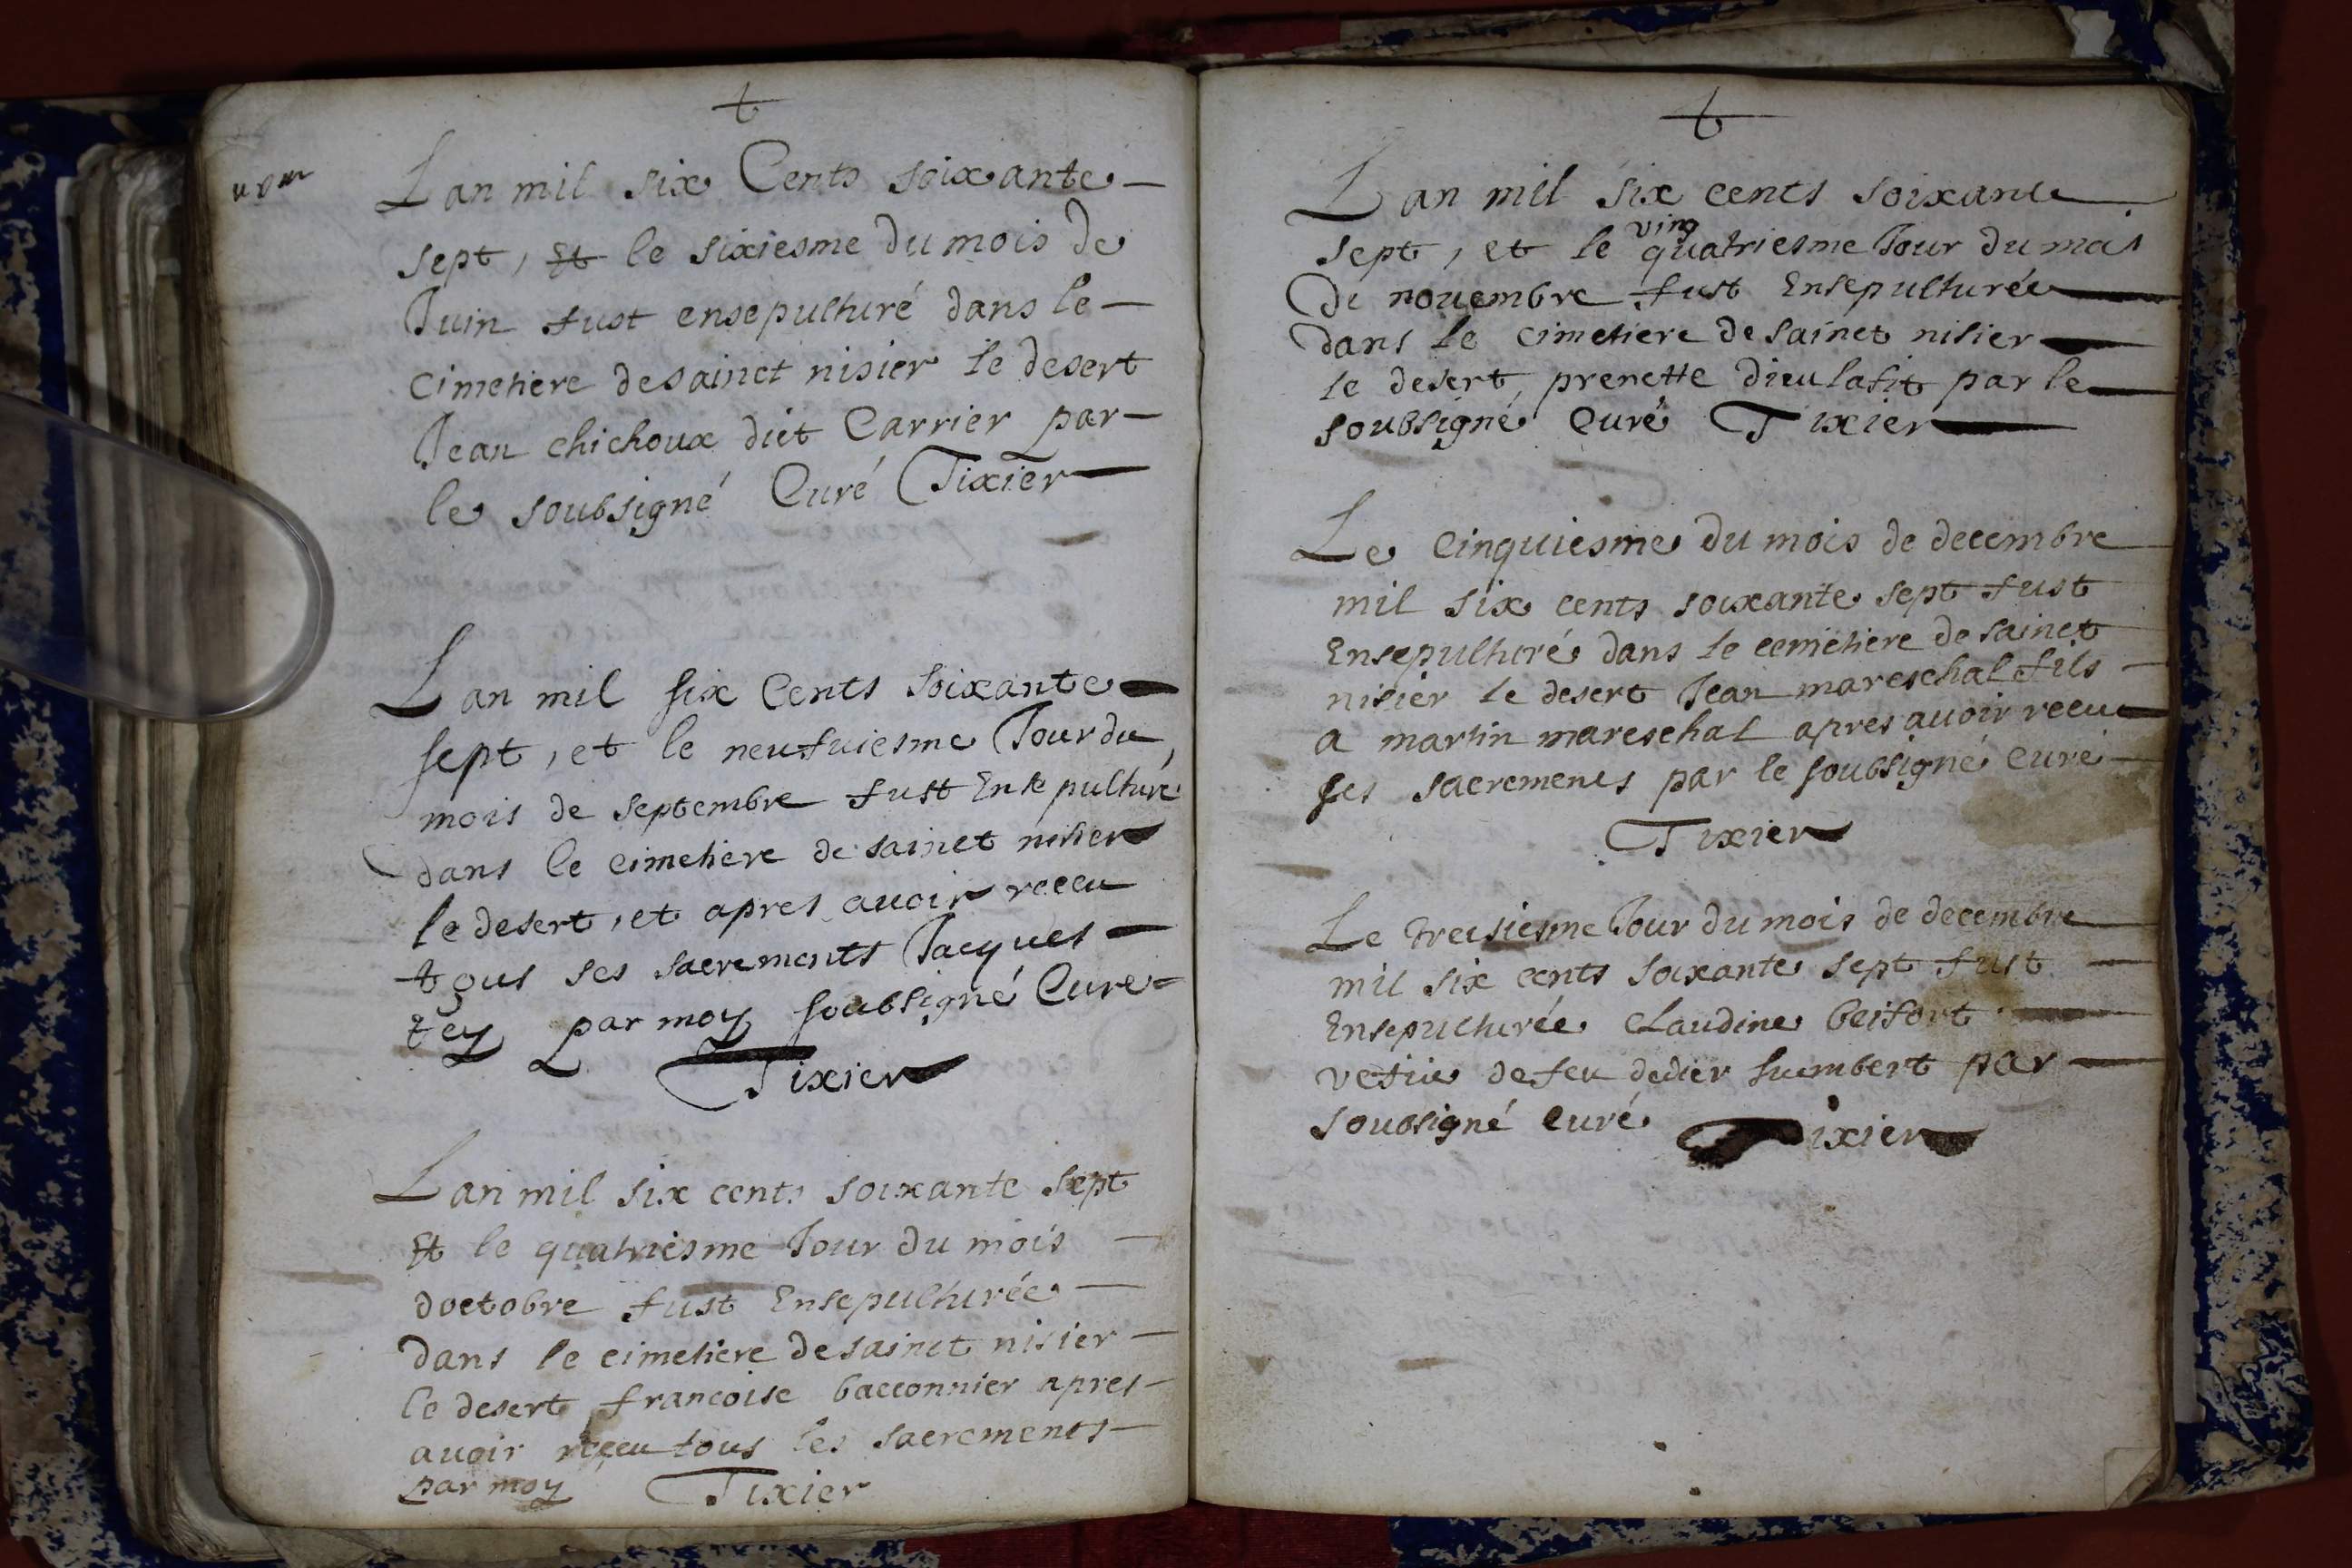 Lan mil six Cents soixante
sept, Et le sixiesme du mois de
Juin fust ensepulturé dans le
cimetiere de sainct nisier le desert
Jean chichoux dict Carrier par
le soubsigné Curé Tixier
Lan mil six Cents soixante
sept, et le neufuiesme Jour du
mois de septembre fust Ensepulturé
dans le cimetiere de sainct nisier
le desert, et apres avoir receu
tous ses sacrements Jacques
rey par moy soubsigné Cure
Tixier
Lan mil six cents soixante sept
Et le quatriesme Jour du mois
doctobre fust Ensepulturée
dans le cimetiere de sainct nisier
le desert francoise bacconnier apres
avoir receu tous les sacrements
par moy Tixier
Lan mil six cents soixante
ving
sept, et le quatriesme Jour du mois
De novembre fust Ensepulturée
dans le cimetiere de sainct nisier
le desert prenette dieulafit par le
soubsigné Curé Tixier
Le Cinquiesme du mois de decembre
mil six cents soixante sept fust
Ensepulturé dans le cemetiere de sainct
nisier le desert Jean mareschal fils
a martin mareschal apres avoir receu
ses sacrements par le soubsigné Curé
Tixier
Le treisiesme Jour du mois de decembre
mil six cents soixante sept fust
Ensepulturée Claudine beifort
vefue de feu dedier humbert par
soubsigné curé Tixier